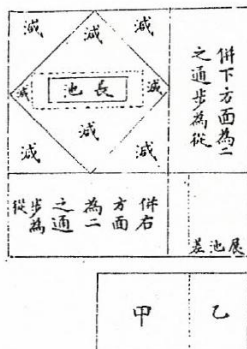 減 減 減
減 長池 減
減 減 減
併下方面為二
之通步為從
併右
方面
為二
之通
步為
從
展池差
乙
甲